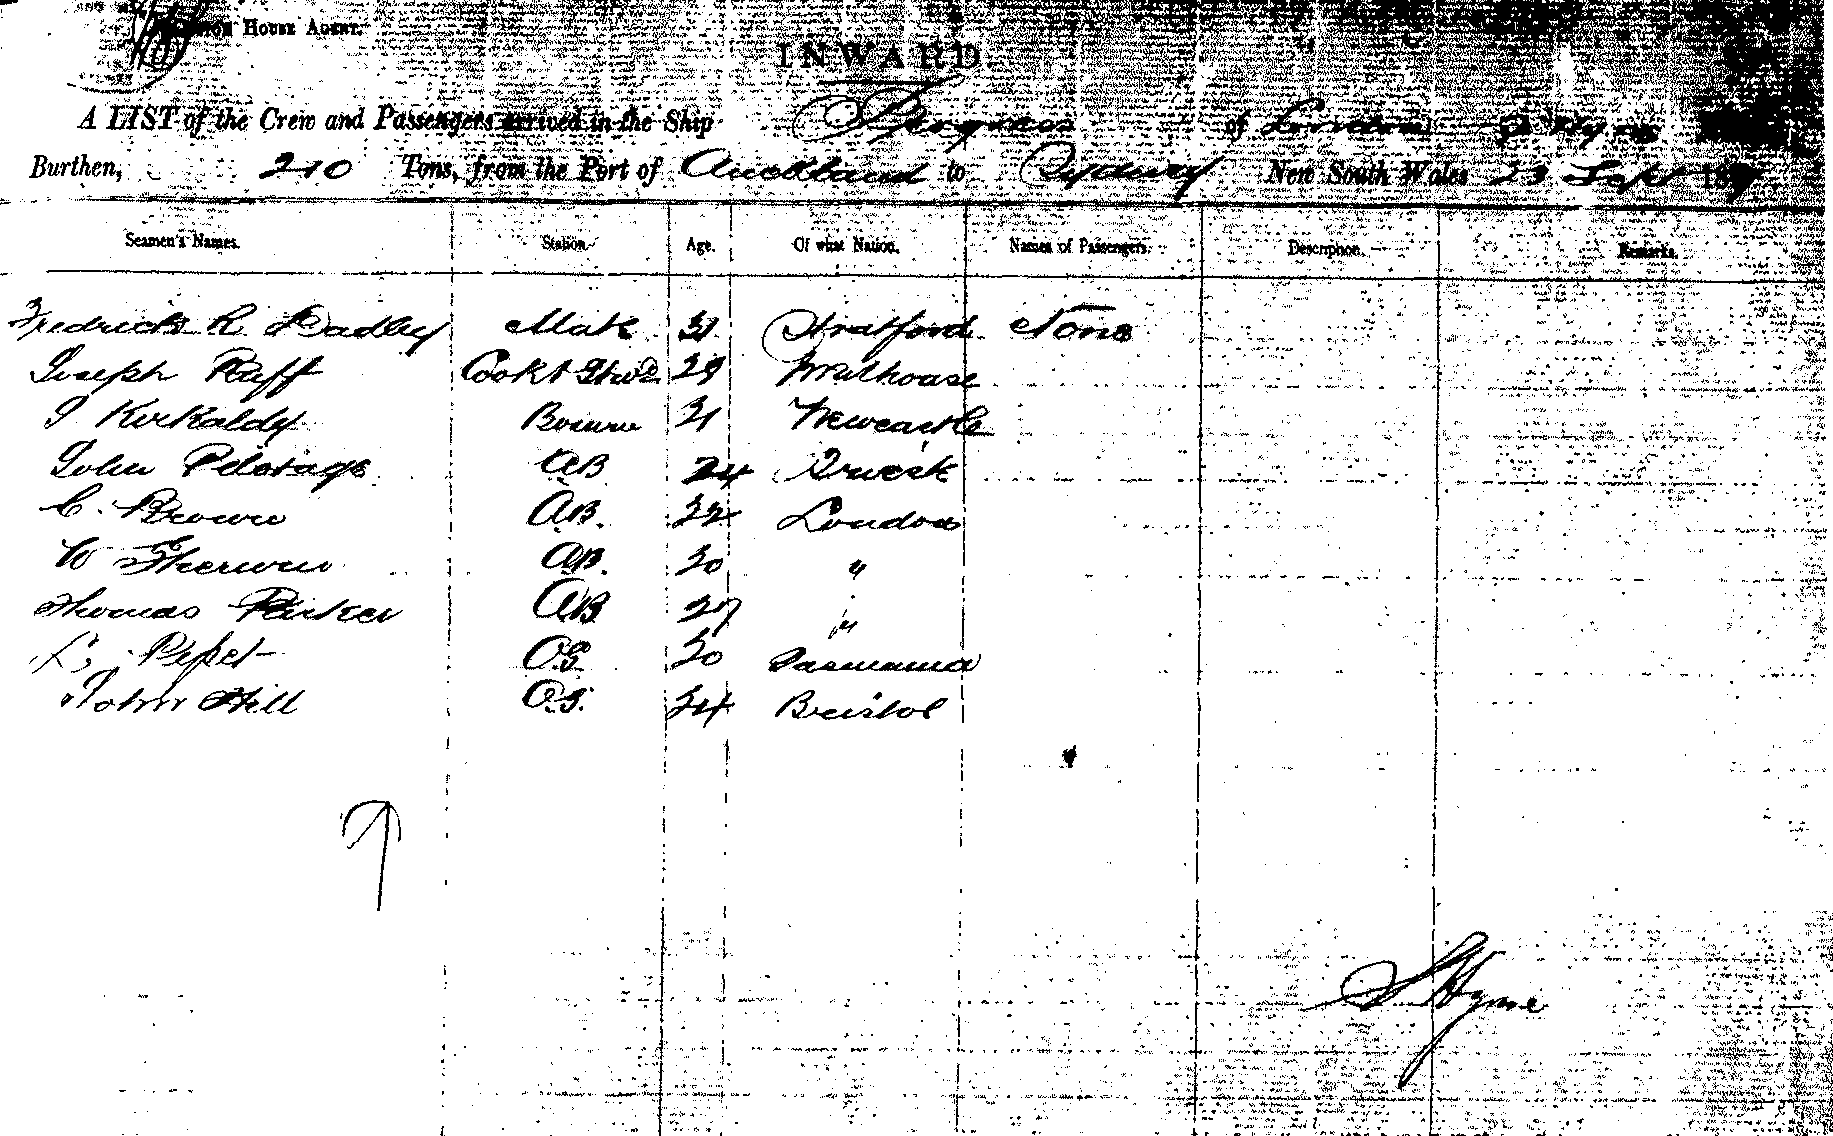 House Agent.
INWARD
A LIST of the Crew and Passengers arrived in the Ship of London
Burthen, 210 Tons, from the Port of Auckland to Sydney New South Wales 23 Sept 18
Seamen's Names. Station. Age. Of what Nation. Names of Passengers. Description. Remarks.
Fredrick R Dadley Mate 31 Stratford None
Joseph Ruff Cook & Stwd 29 Mulhouse
J Kirkaldy 21 Newcastle
John AB 24
C. Brown AB. 22 London
W Sherwin AB. 20 "
Thomas Parker AB 27 "
OS 20 Tasmania
John Hill OS. 24 Bristol
S Hyne